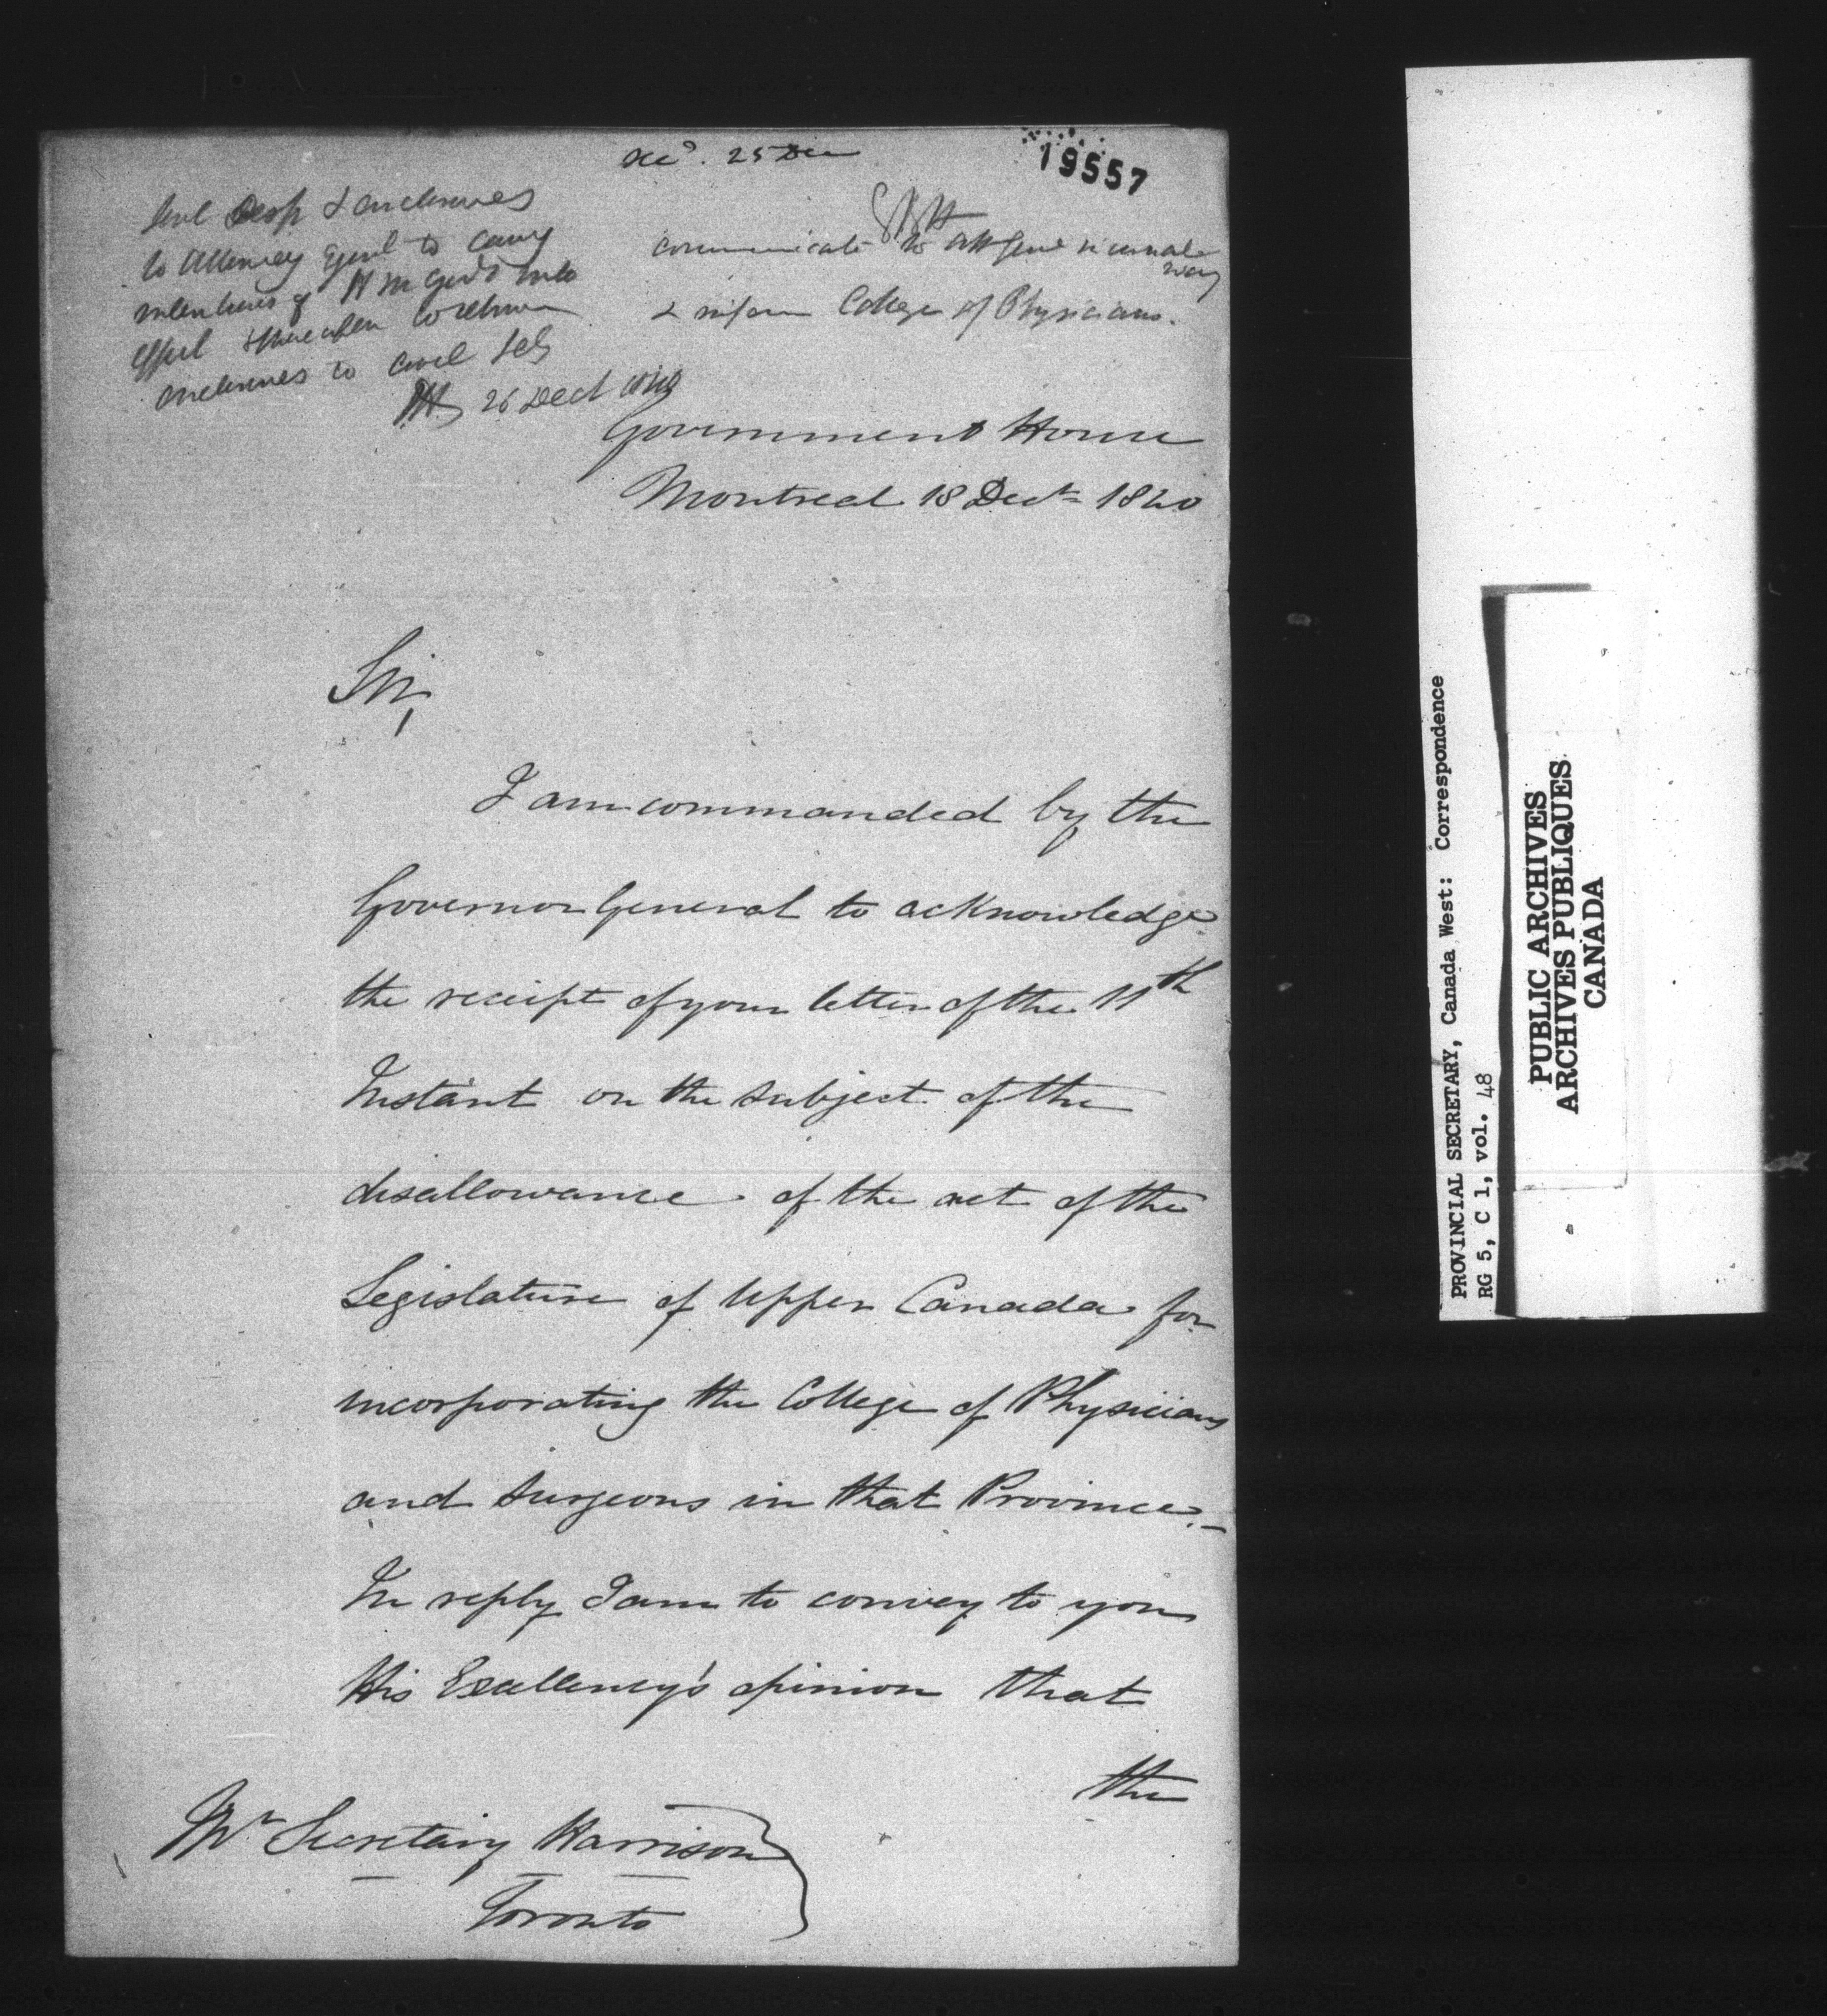 Recd. 25 Dec
19557
Send Desp & enclosures
to Attorney Genl to carry
intentions of H M Govt into
effect & thereafter to return
enclosures to Civil Secy
26 Decr 1840
communicate to Att Genl in usual
way
& inform College of Physicians.
Government House
Montreal 18 Decr 1840
Sir,
I am commanded by the
Governor General to acknowledge
the receipt of your letter of the 11th
Instant on the subject of the
disallowance of the act of the
Legislature of Upper Canada for
incorporating the College of Physicians
and Surgeons in that Province._
In reply I am to convey to you
His Excellency's opinion that
the
Mr Secretary Harrison
Toronto
PROVINCIAL SECRETARY, Canada West: Correspondence
RG 5, C 1, vol. 48
PUBLIC ARCHIVES
ARCHIVES PUBLIQUES
CANADA